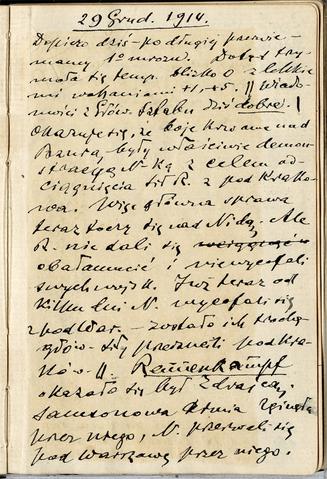 29 Grud. 1914.
Dopiero dziś – po długiej przerwie –
mamy 1° mrozu. Dotąd trzy
mała się temp. blisko 0 z lekkie
mi wahaniami +1, -5. || Wiado-
mości z Głów. Sztabu dziś dobre. |
Okazuje się, że boje krwawe nad
Bzurą były właściwie demon
stracyą N-ką z celem od-
ciągnięcia sił R. z pod Krako-
wa. Więc główna sprawa
teraz toczy się nad Nidą. Ale
R. nie dali się
obałamucić i nie wycofali
swych wojsk. Już teraz od
kilku dni N. wycofali się
z pod War. – zostało ich trochę
główn. siły przeszli pod Kra-
ków. || Rennenkampf
okazało się był zdrajcą.
Samsonowa armia zginęła
przez niego, N. przerwali się
pod Warszawę przez niego.